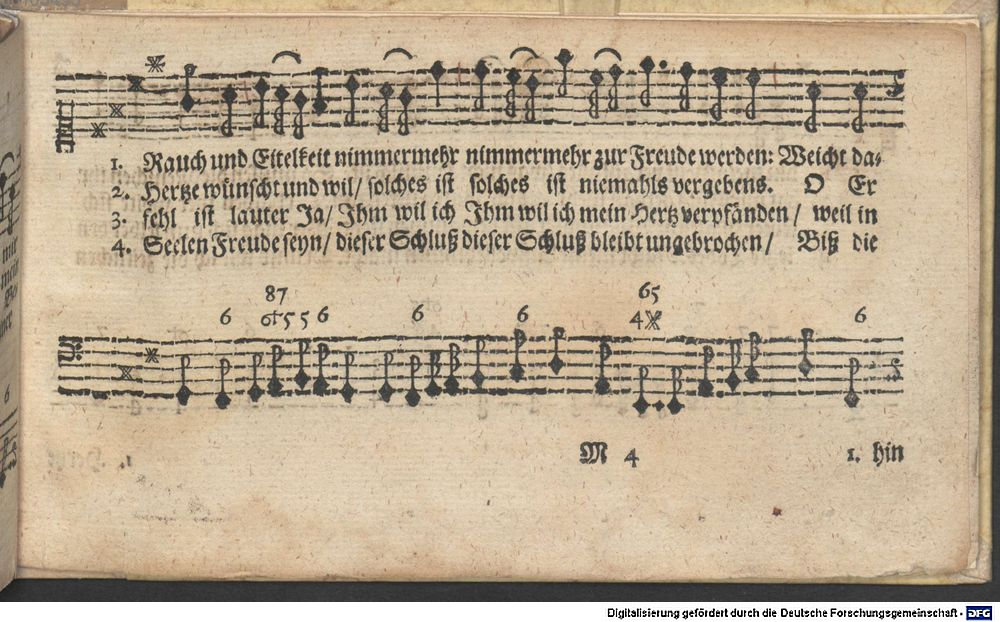 1. Rauch und Eitelkeit nimmermehr nimmermehr zur Freude werden: Weicht da-
2. Hertze wünscht und wil/ solches ist solches ist niemahls vergebens. O Er
3. fehl ist lauter Ja/ Ihm wil ich Ihm wil ich mein Hertz verpfänden/ weil in
4. Seelen Freude seyn/ dieser Schluß dieser Schluß bleibt ungebrochen/ Biß die
87 65
6 6†5 5 6 6 6 4 6
M 4 1. hin
6
Digitalisierung gefördert durch die Deutsche Forschungsgemeinschaft - DFG